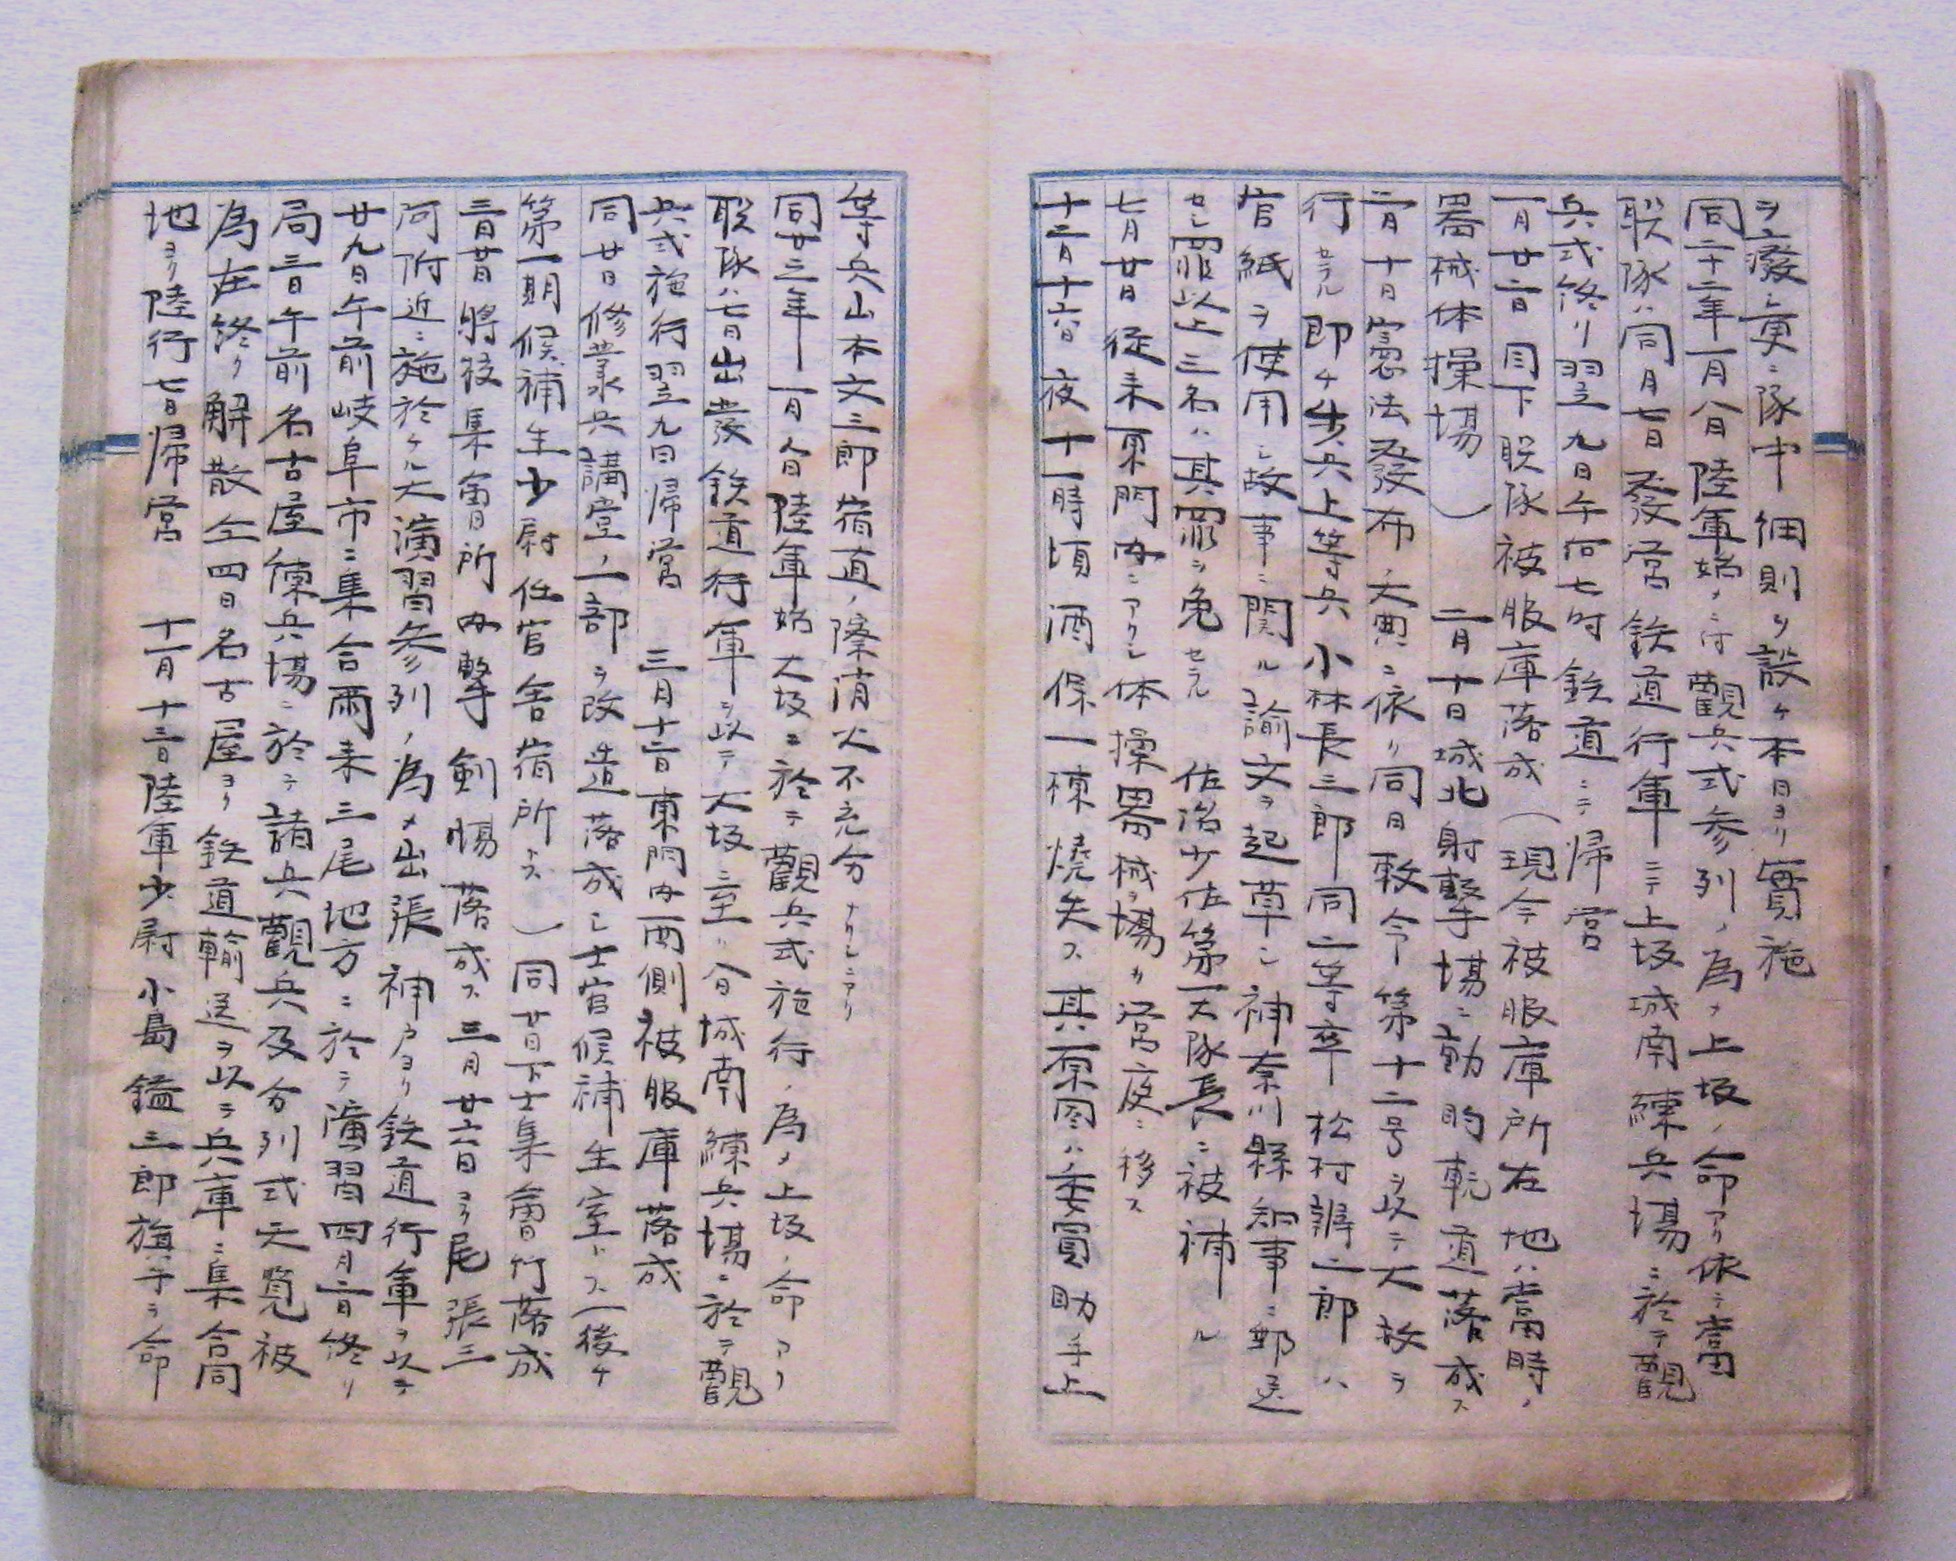 ヲ廢シ更ニ隊中細則ヲ設ケ本日ヨリ實施
同二十二年一月八日陸軍始メニ付觀兵式参列ノ為メ上坂ノ命アリ依テ當
聯隊ハ同月七日發営鉄道行軍ニテ上坂城南練兵場ニ於テ觀
兵式終リ翌九日午前七時鉄道ニテ帰営
一月廿二日同下聯隊被服庫落成(現今被服庫所在地ハ當時ノ
器械体操場) 二月十日城北射擊場ニ動的軌道落成ス
二月十日憲法發布ノ大典ニ依リ同日敕令第十二号ヲ以テ大赦ヲ
行セラル即チ歩兵上等兵小林長三郎同二等卒松村辨二郎ハ
官紙ヲ使用シ故事ニ関ル諭文ヲ起草シ神奈川縣知事ニ郵送
セシ罪以上三名ハ其罪ヲ免セラル 佐治少佐第一大隊長ニ被補ル
七月廿日従来東門内ニアリシ体操器械場ヲ営庭ニ移ス
十二月十六日夜十一時頃酒保一棟燒失ス其原因ハ委員助手上
等兵山本文三郎宿直ノ際消火不充分ナリシニアリ
同廿三年一月八日陸軍始大坂ニ於テ觀兵式施行ノ為メ上坂ノ命アリ
聯隊ハ七日出發鉄道行軍ヲ以テ大坂ニ至リ八日城南練兵場ニ於テ觀
兵式施行翌九日帰営 三月十二日東門内西側被服庫落成
同廿日修業兵講堂ノ一部ヲ改造落成シ士官候補生室トス(後チ
第一期候補生少尉任官舎宿所トス)同廿日下士集會所落成
三月廿日將校集會所内擊剣場落成ス三月廿六日ヨリ尾張三
河附近ニ施於ケル大演習参列ノ為メ出張神戸ヨリ鉄道行軍ヲ以テ
廿九日午前岐阜市ニ集合爾来三尾地方ニ於テ演習四月二日終リ
局三日午前名古屋練兵場ニ於テ諸兵觀兵及分列式天覧被
為在終リ解散仝四日名古屋ヨリ鉄道輸送ヲ以テ兵庫ニ集合同
地ヨリ陸行七日帰営 十一月十三日陸軍少尉小島鎰三郎旗手ヲ命